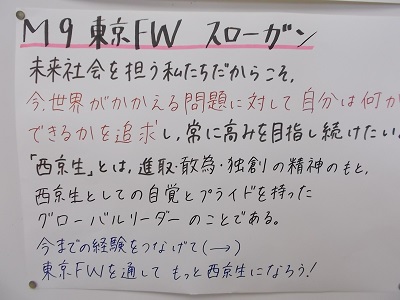 M9 東京FW スローガン
未来社会を担う私たちだからこそ、
今世界がかかえる問題に対して自分は何が
できるかを追求し、常に高みを目指し続けたい。
「西京生」とは、進取・敢為・独創の精神のもと、
西京生としての自覚とプライドを持った
グローバルリーダーのことである。
今までの経験をつなげて(→)
東京FWを通してもっと西京生になろう!